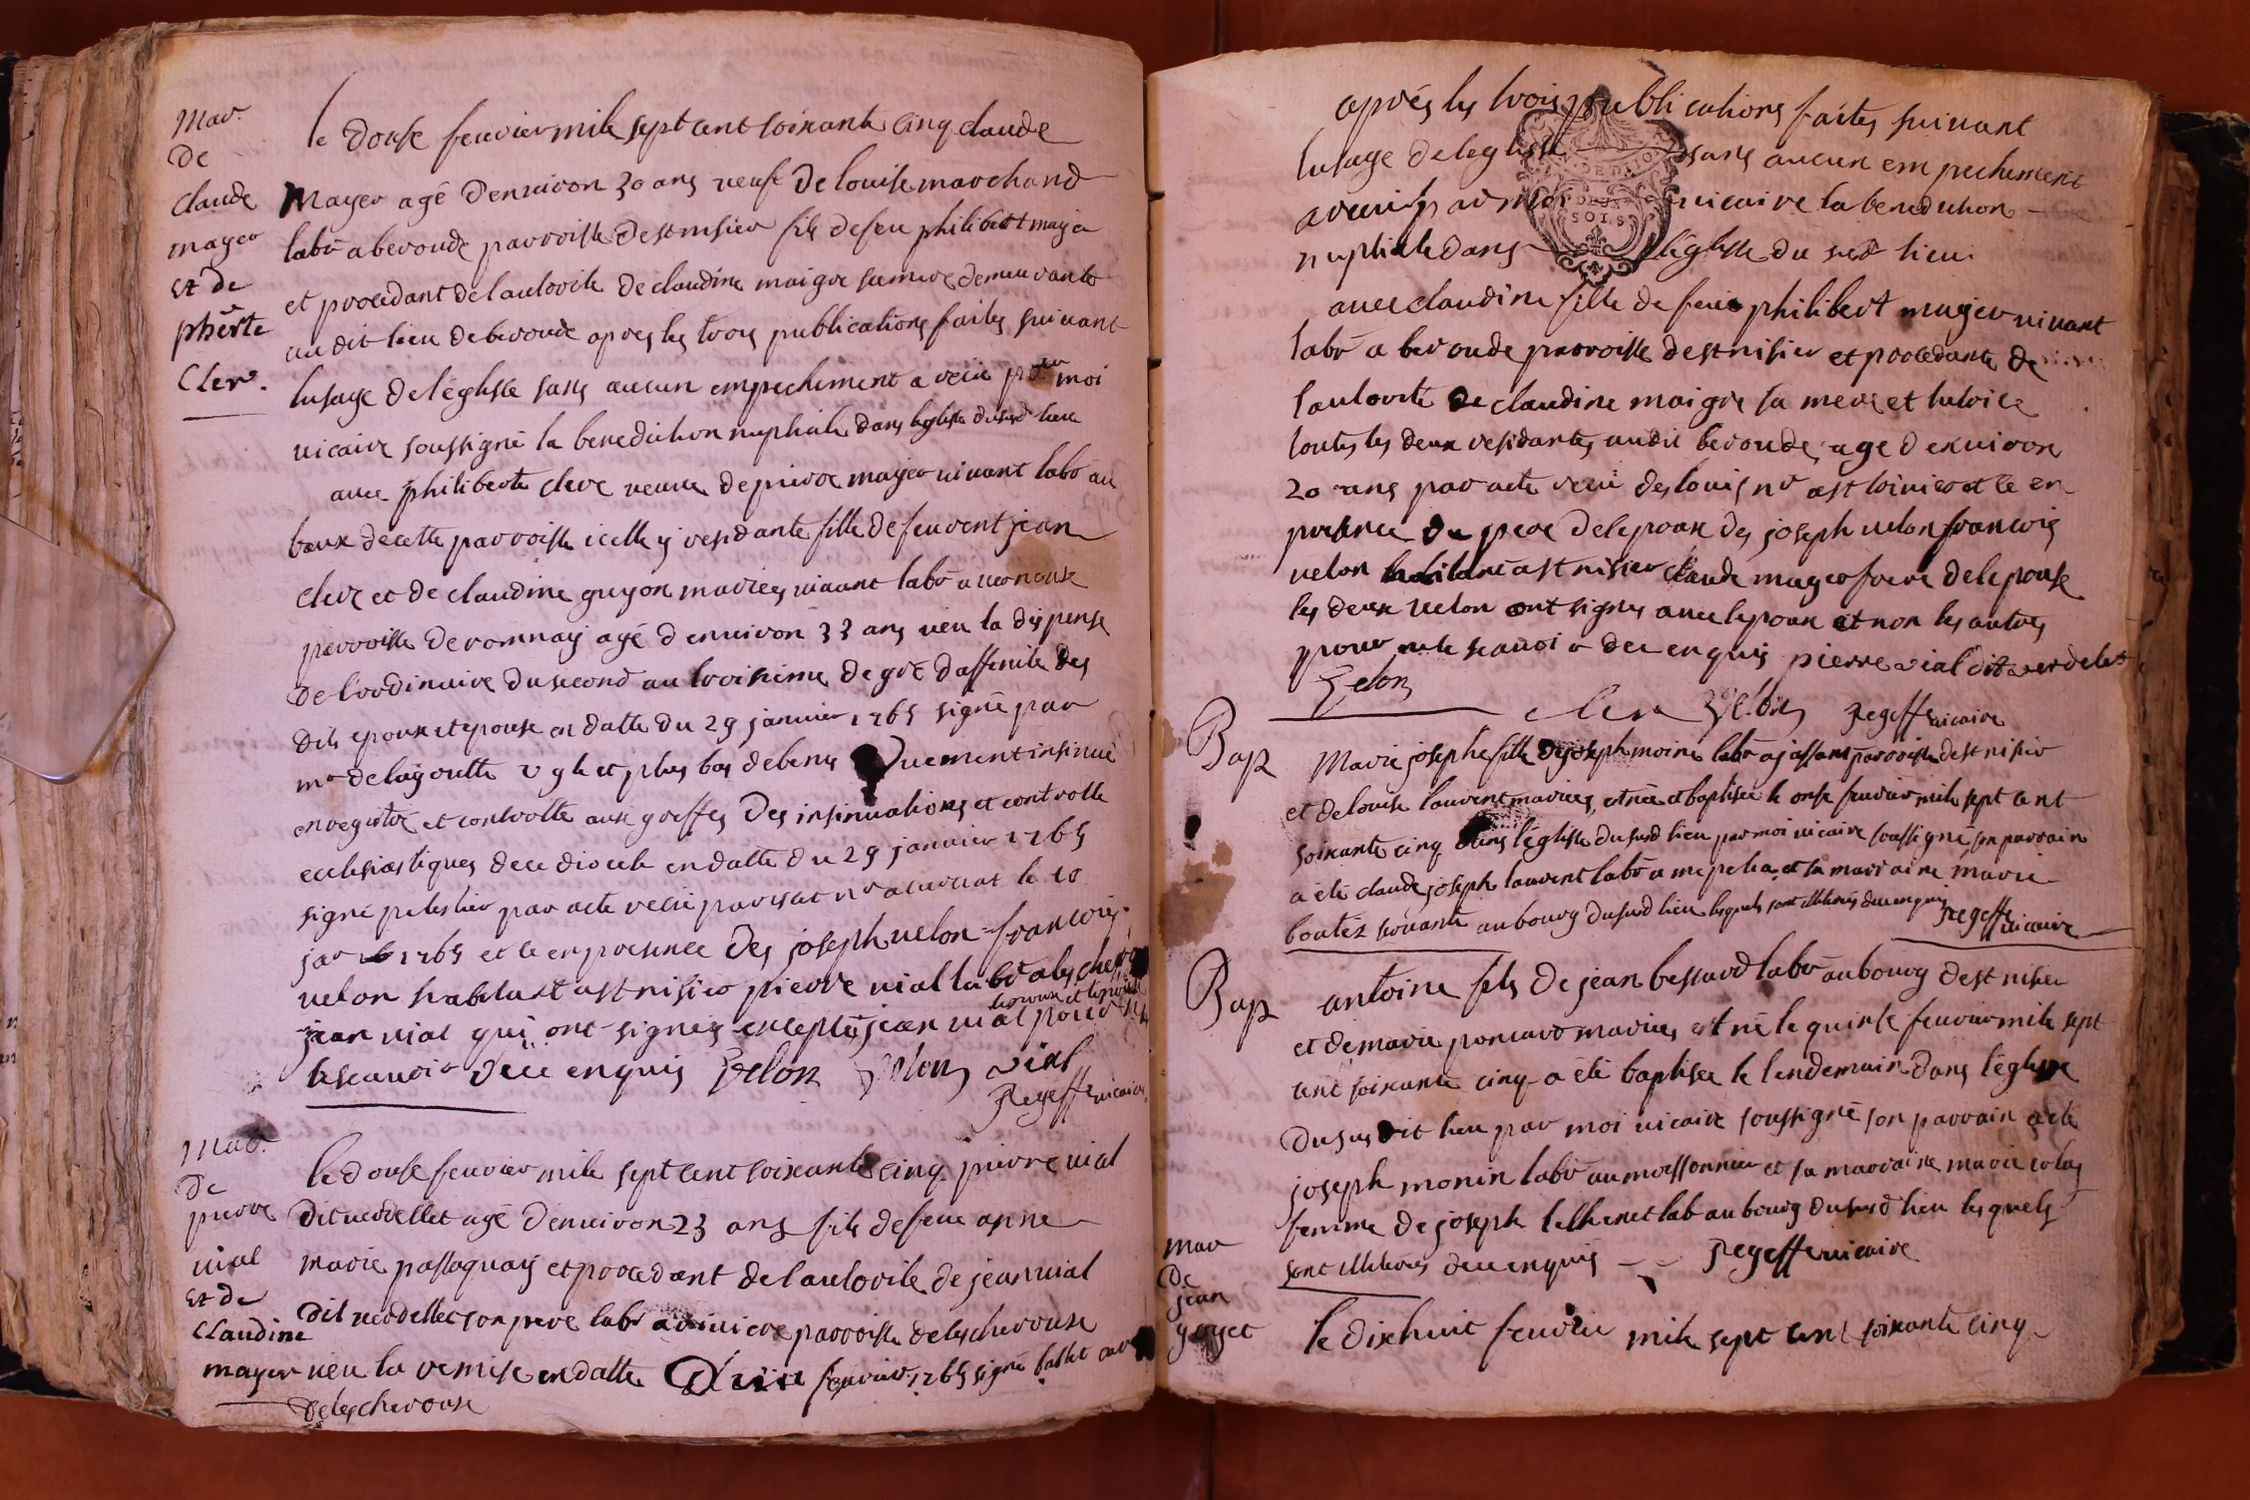 Mar.
De
claude
mayer
et de
phērte
Cler.
le douse feuvier mile sept cent soixante cinq claude
Mayer agé d'enuiron 30 ans veuf de louise marchand
labr a beroude parroisse destnisier fils de feu philibert mayer
et procedant de lautorite de claudine maigre sa mere demeurante
au dit lieu de beroude apres les trois publications faites suivant
lusage de léglisse sans aucun empechement a recu par moi
vicaire soussigné la benediction nuptiale dans léglisse du sud lieu
avec philiberte clere veuve de pierre mayer vivant labr au
baux de cette parroisse icelle y residante fille de feu vent jean
clere et de claudine guyon mariés vivant labr a
parroisse de romnay agé d'enuiron 33 ans veu la dispense
de l'ordinaire du second au troisieme degré daffinite des
dits epoux et epouse en datte du 29 janvier 1765 signé par
mr de lagoutte v g le et plus bas debeny duement insinué
enregistré et controlle aux greffes des insinuations et controlle
ecclesiastiques de ce diocese en datte du 29 janvier 1765
signé peletier par acte recu par nr a le 10
jar 1765 et ce en presence des joseph velon francois
velon habitant a st nisier pierre vial labr a les
jean vial qui ont signés excepté jean vial pour
le scauoir de ce enquis Velon Velon vial
Regeffe vicaire
Mar.
De
pierre
vial
et de
Claudine
mayer
le douse feuvier mile sept cent soixante cinq pierre vial
dit verdellet agé denuiron 23 ans fils de feue anne
marie passaquay et procedant de lautorite de jean vial
dit verdellet son pere labr a riviere parroisse delescherouse
veu la remise en datte d'vii feuvier 1765 signé ballet curé
de lescherouse
après les trois publications faites suivant
lusage de leglisse sans aucun empechement
a recu par moi vicaire la benediction
nuptiale dans léglisse du sud lieu
avec claudine fille de feu philibert mayer vivant
labr a beroude parroisse destnisier et procedante de
lautorite de claudine maigre sa mere et tutrice
toutes les deux residantes audit beroude, age denuiron
20 ans par acte recu des louis nr a st et ce en
presence du pere de lepoux des joseph velon francois
velon habitant a st nisier claude mayer frere de lepouse
les deux velon ont signés avec lepoux et non les autres
pour ne le scauoir de ce enquis pierre vial dit verdelet
Velon
clere Velon Regeffe vicaire
Bap
Marie josephe fille de joseph moine labr a jassans parroisse dest nisier
et de louise laurent mariés, et née et baptisée le onse feuvier mile sept cent
soixante cinq dans léglisse du sud lieu par moi vicaire soussigné son parrain
a été claude joseph laurent labr a et sa marraine marie
boutéz servante au bourg du sud lieu lesquels sont illiterés de ce enquis Regeffe
vicaire
Bap
antoine fils de jean bessard labr au bourg dest nisier
et de marie poncard mariés est né le quinse feuvier mile sept
cent soixante cinq a été baptisee le lendemain dans l'églisse
du sus dit lieu par moi vicaire soussigné son parrain a ete
joseph monin labr au moissonnier et sa marraine marie colas
femme de joseph lab au bourg du sud lieu lesquels
sont illiterés de ce enquis Regeffe vicaire
Mar
De
jean
goyet
le dixhuit feuvier mile sept cent soixante cinq